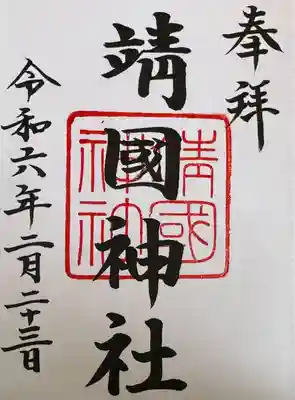 奉拝
靖國神社
靖國
神社
令和六年二月二十三日